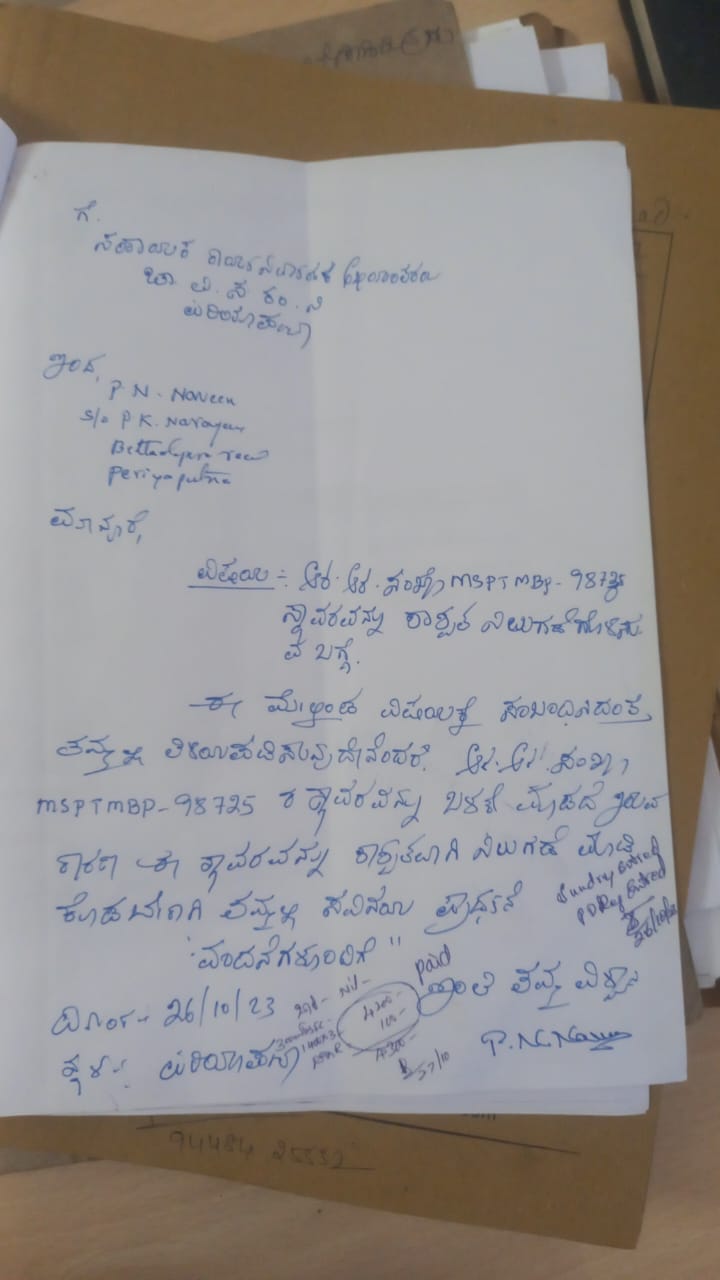 ಗೆ.
ಸಹಾಯಕ ಕಾರ್ಯನಿರ್ವಾಹಕ
ಚಾ. ವಿ. ಸ. ಕಂ. ನಿ
ಪಿರಿಯಾಪಟ್ಟಣ
ಇಂದ,
P. N. Naveen
S/o P K. Narayan
Bettadapura road
Periyapatna
ಮಾನ್ಯರೆ,
ವಿಷಯ :- ಆರ್. ಆರ್. ಸಂಖ್ಯೆ MSPTMBP-98725
ಸ್ಥಾವರವನ್ನು ಶಾಶ್ವತ ನಿಲುಗಡೆಗೊಳಿಸು
ವ ಬಗ್ಗೆ.
ಈ ಮೇಲ್ಕಂಡ ವಿಷಯಕ್ಕೆ ಸಂಬಂಧಿಸಿದಂತೆ
ತಮ್ಮಲ್ಲಿ ತಿಳಿಯಪಡಿಸುವುದೇನೆಂದರೆ. ಆರ್. ಆರ್ ಸಂಖ್ಯೆ
MSPTMBP-98725 ರ ಸ್ಥಾವರವನ್ನು ಬಳಕೆ ಮಾಡದೆ ಇರುವ
ಕಾರಣ ಈ ಸ್ಥಾವರವನ್ನು ಶಾಶ್ವತವಾಗಿ ನಿಲುಗಡೆ ಮಾಡಿ
ಕೊಡಬೇಕಾಗಿ ತಮ್ಮಲ್ಲಿ ಸವಿನಯ ಪ್ರಾರ್ಥನೆ
Sundry
26/10/23
"ವಂದನೆಗಳೊಂದಿಗೆ"
ದಿನಾಂಕ:- 26/10/23
Nil-
4200-
100-
4300-
27/10
paid
ಇಂತಿ ತಮ್ಮ ವಿಶ್ವಾಸಿ
ಸ್ಥಳ:- ಪಿರಿಯಾಪಟ್ಟಣ
P.N. Naveen